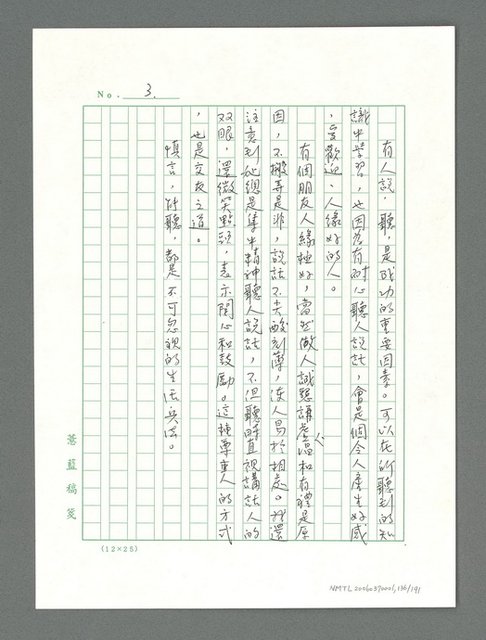 No. 3.
有人說，聽，是成功的重要因素。可以在所聽到的知
識中學習，也因為有耐心聽人說話，會是個令人產生好感
、受歡迎、人緣好的人。
有個朋友人緣極好，當然做人誠懇謙虛溫和有禮是原
因，不搬弄是非，說話不尖酸刻薄，使人易於相處。我還
注意到他總是集中精神聽人說話，不但聽時直視講話人的
双眼，還微笑點頭，表示関心和鼓勵。這種尊重人的方式
，也是交友之道。
慎言，傾聽，都是不可忽視的生活
薏藍稿箋
(12×25)
NMTL20060370001,136/191